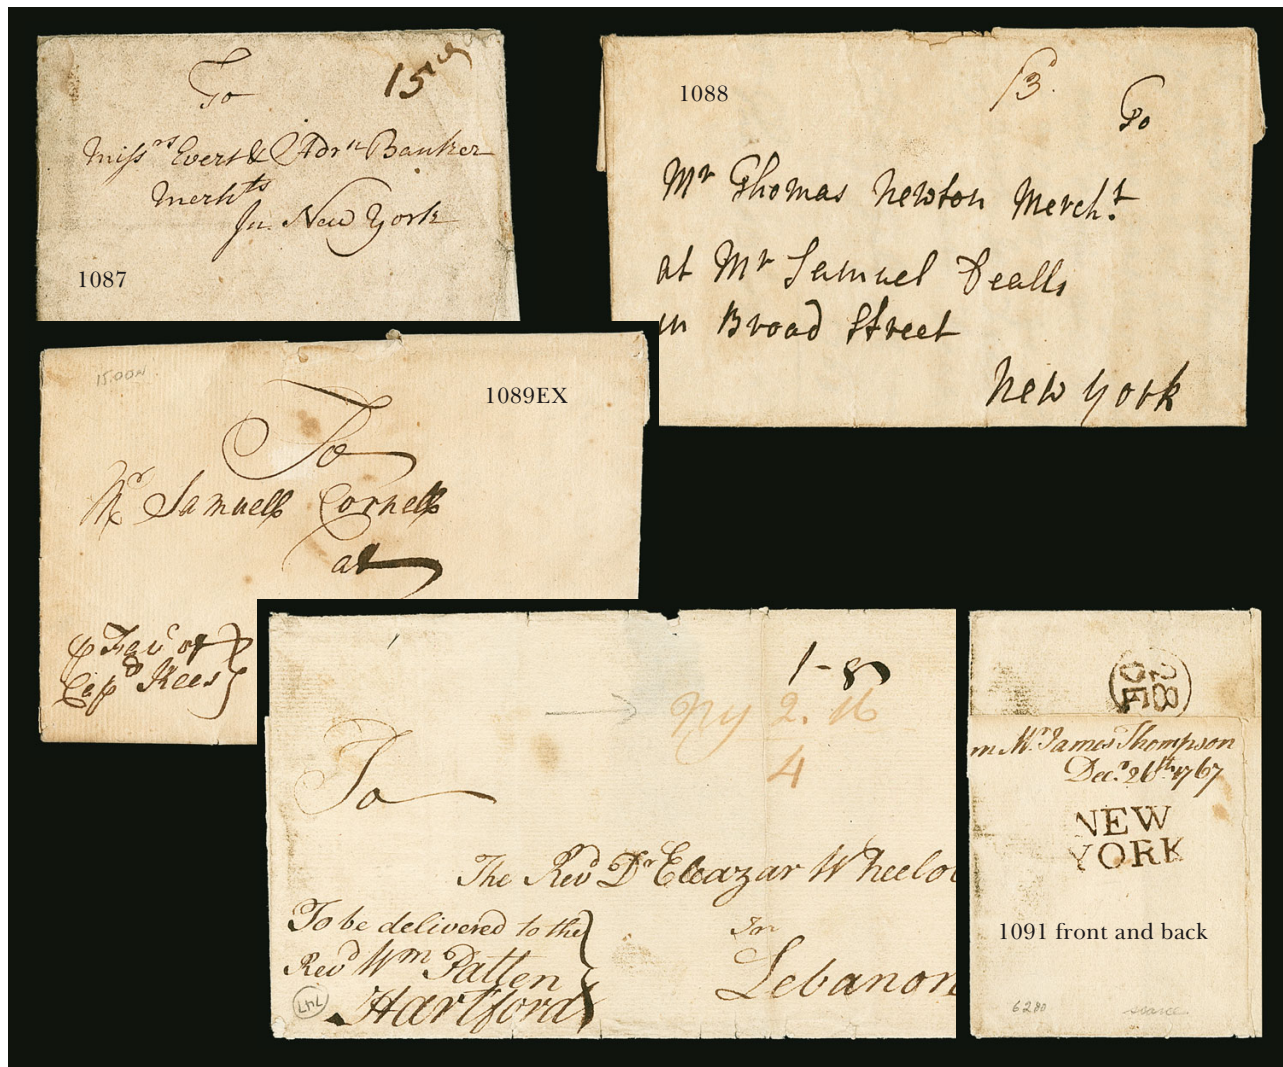 To
15
Miss:rs Evert & Adrn Banker
Merhts
In New York
1087
1088
13
To
Mr Thomas Newton Merch.t
at Mr Samuel Dealls
in Broad Street
New York
15.00
1089EX
To
Mr Samuell Cornell
at
Favr of
Capd Kees
1-8
NY 2.16
4
To
The Revd Dr Eleazar Wheeloc
To be delivered to the
Revd Wm Patten
Hartford
In
Lebanon
747
28
DE
m Mr James Thompson
Decr 26th 1767
NEW
YORK
1091 front and back
6280
scarce